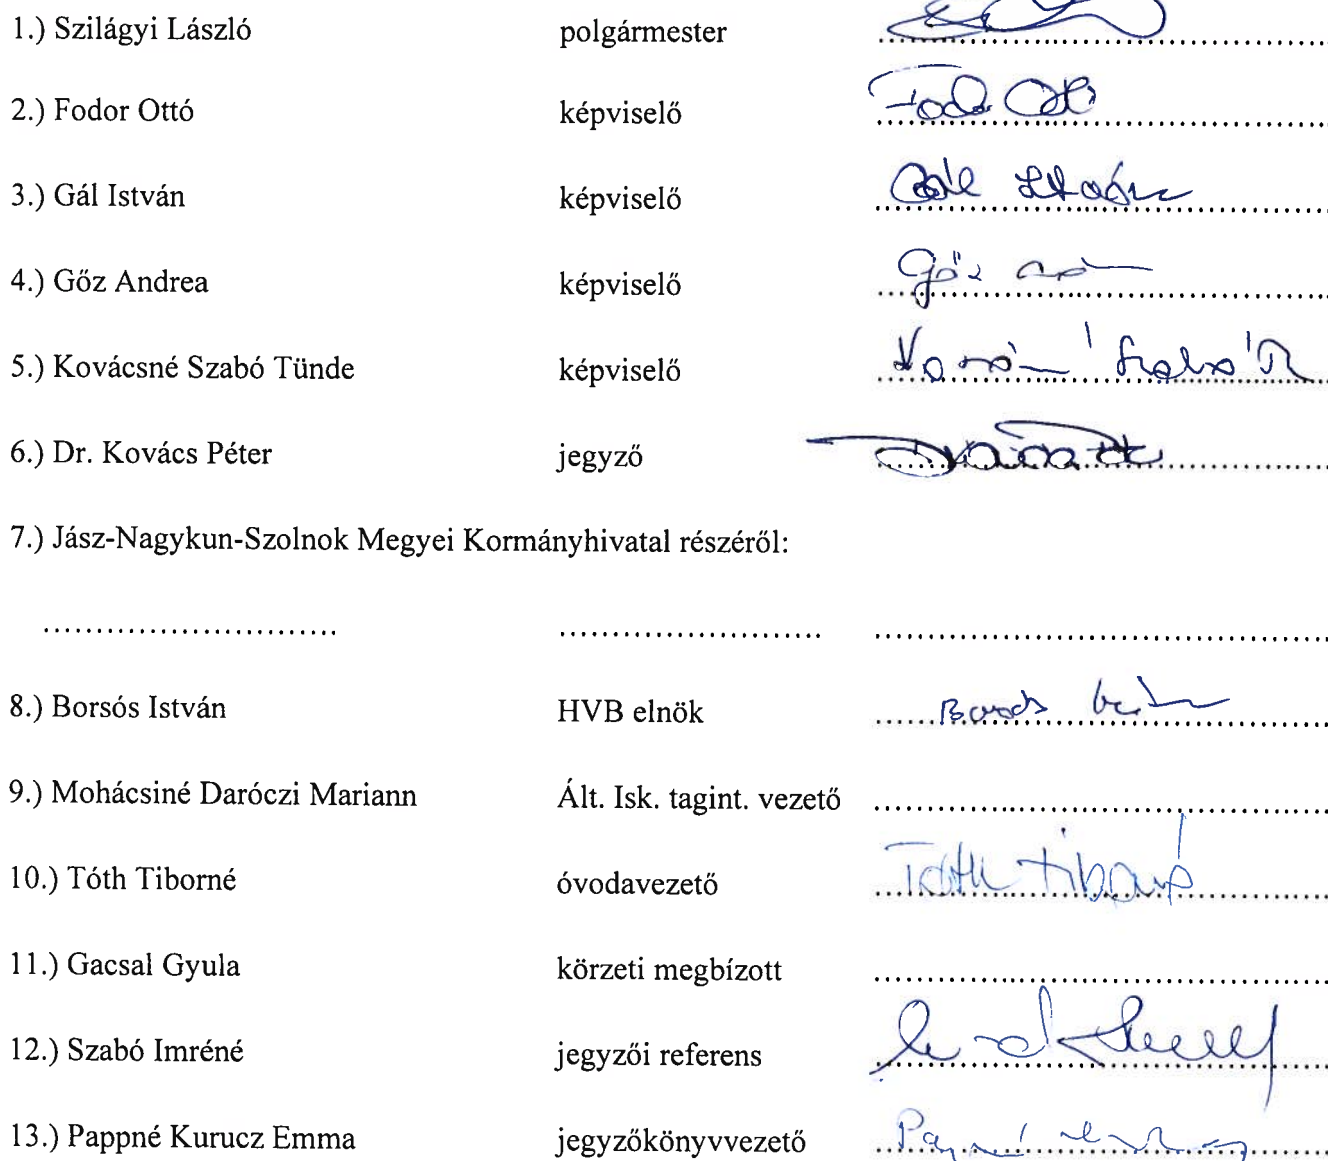 1.) Szilágyi László polgármester
2.) Fodor Ottó képviselő Fodor Ottó
3.) Gál István képviselő Gál István
4.) Gőz Andrea képviselő Gőz
5.) Kovácsné Szabó Tünde képviselő Szabó T
6.) Dr. Kovács Péter jegyző
7.) Jász-Nagykun-Szolnok Megyei Kormányhivatal részéről:
8.) Borsós István HVB elnök
9.) Mohácsiné Daróczi Mariann Ált. Isk. tagint. vezető
10.) Tóth Tiborné óvodavezető Tóth Tiborné
11.) Gacsal Gyula körzeti megbízott
12.) Szabó Imréné jegyzői referens
13.) Pappné Kurucz Emma jegyzőkönyvvezető